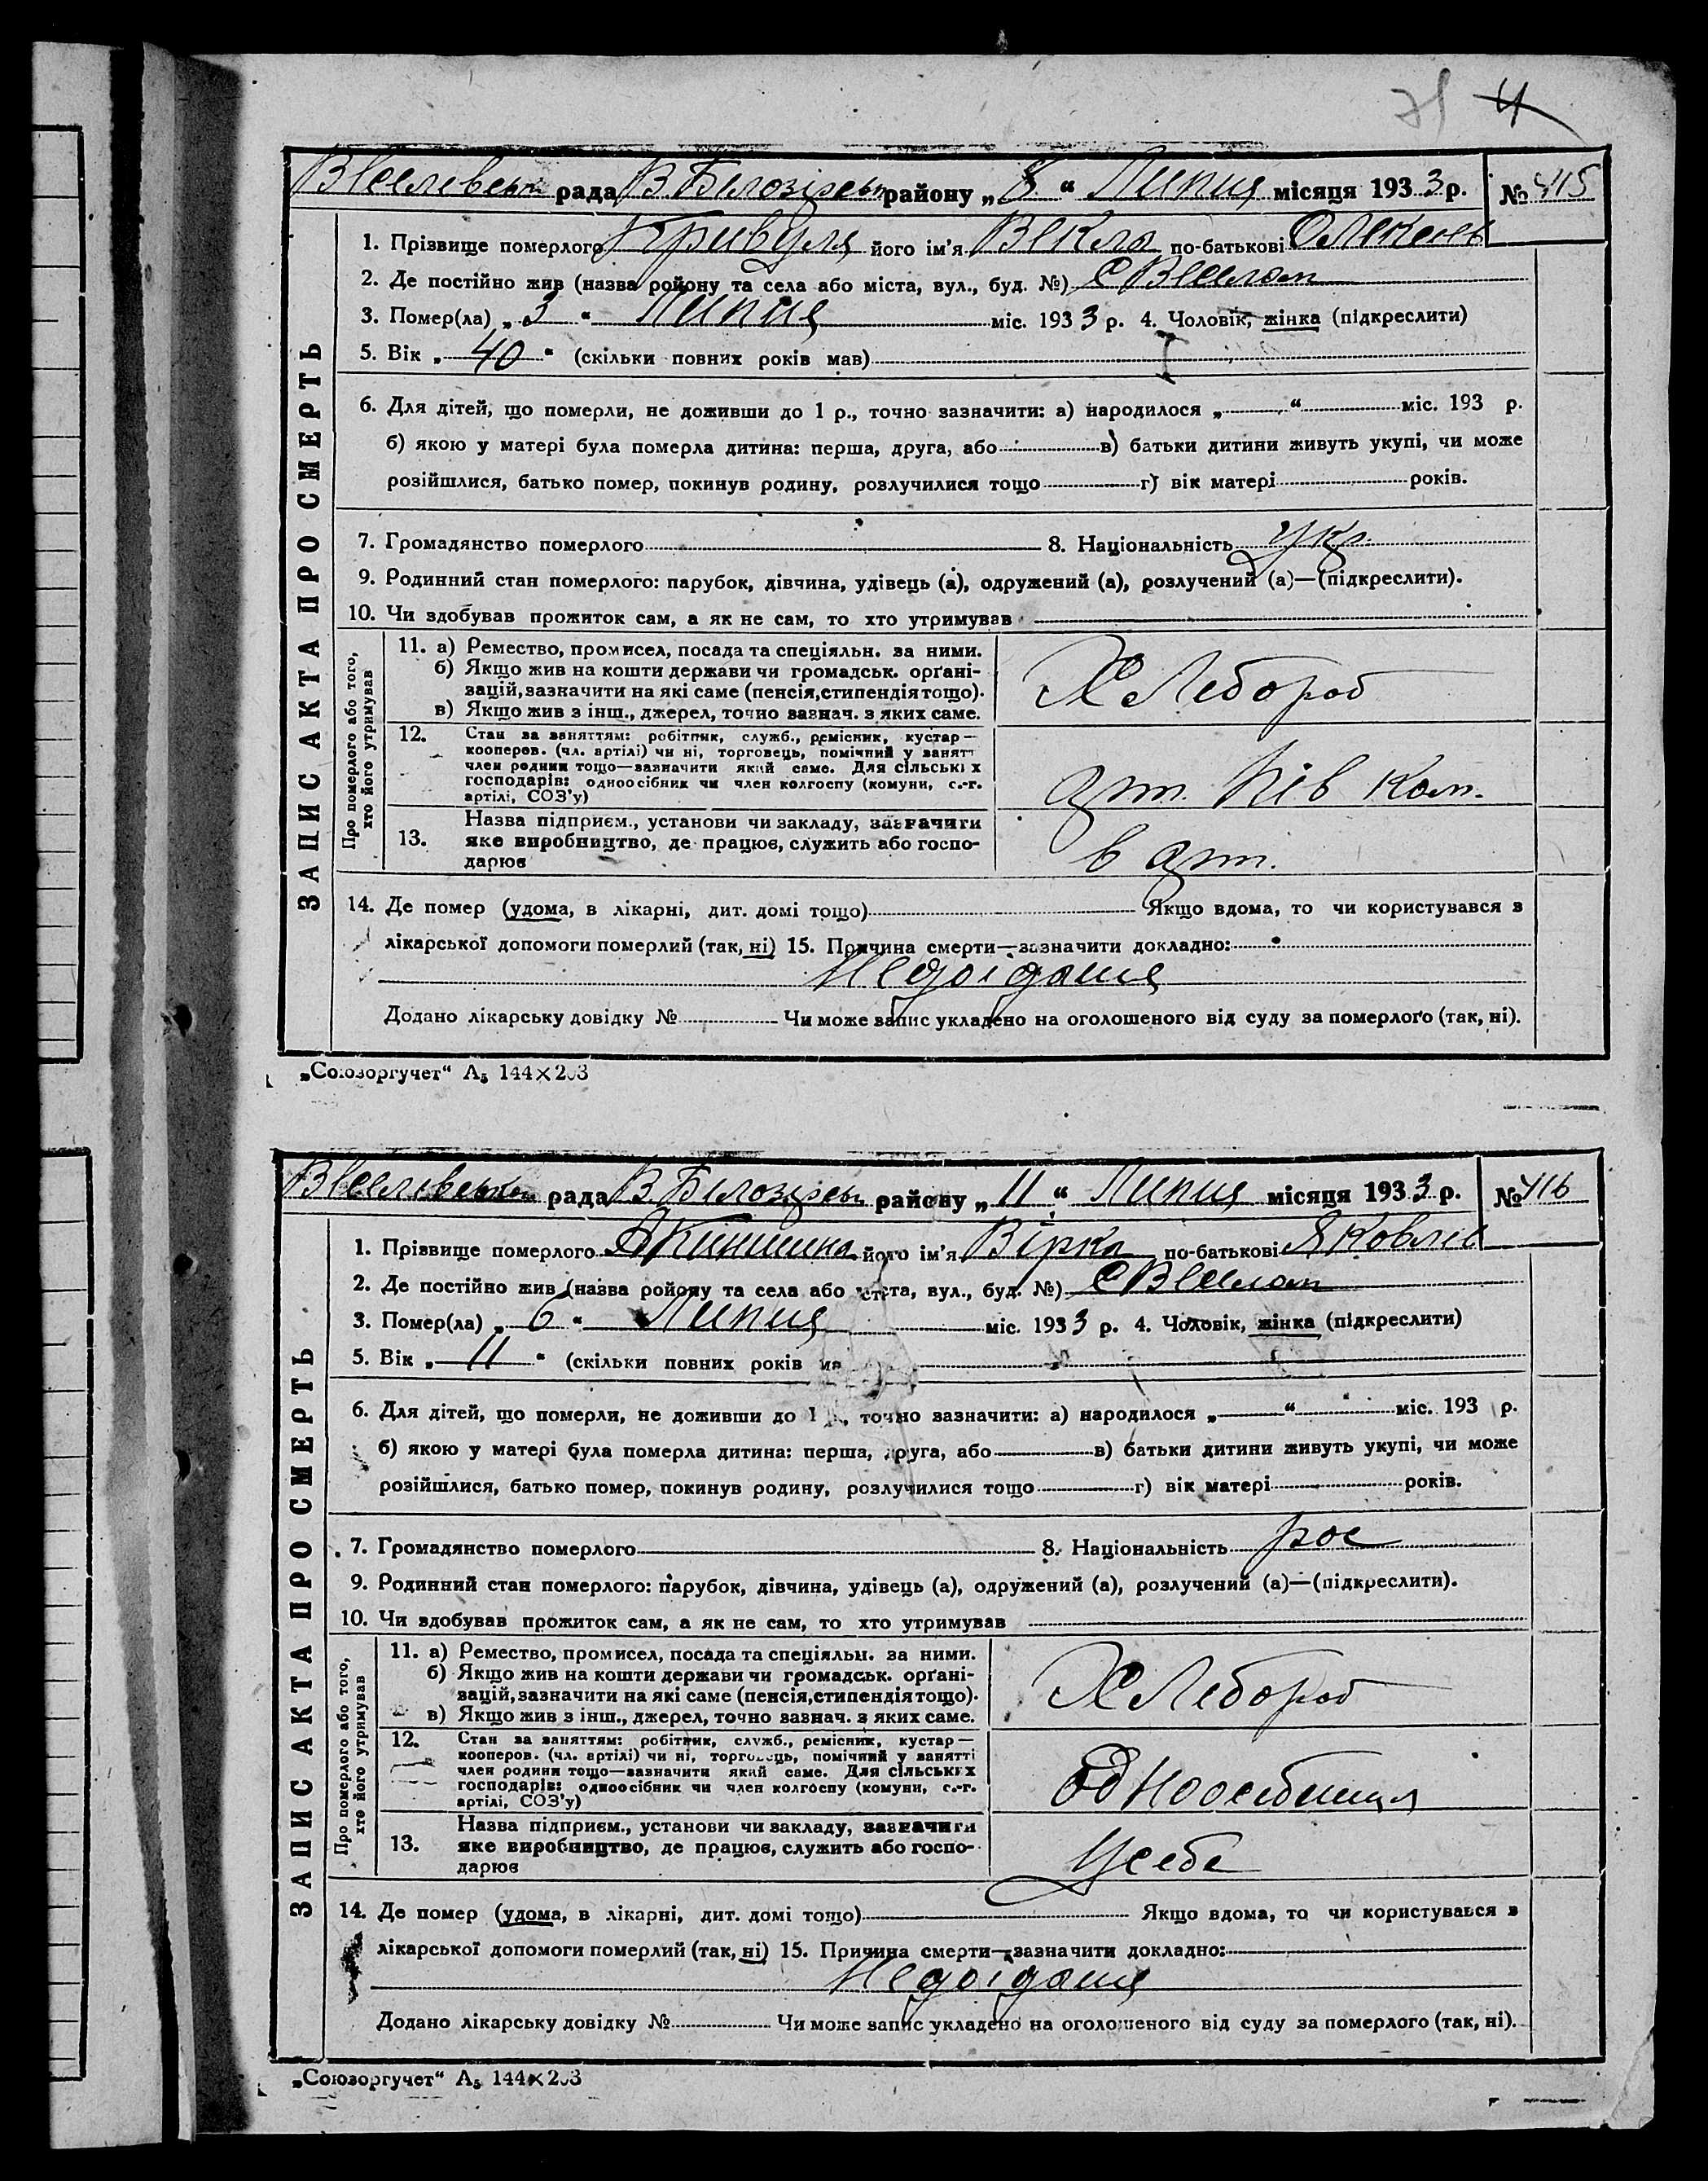 4
Веселівськ рада В Білозірськ району „8“ Липня місяця 1933 р. № 415
ЗАПИС АКТА ПРО СМЕРТЬ
1. Прізвище померлого Кривуля його ім'я Векла по-батькові Олексів
2. Де постійно жив (назва ройону та села або міста, вул., буд. №) С Веселом
3. Помер(ла) „3“ Липня міс. 1933 р. 4. Чоловік, жінка (підкреслити)
5. Вік „40“ (скільки повних років мав)
6. Для дітей, що померли, не доживши до 1 р., точно зазначити: а) народилося „ “ міс. 193 р.
б) якою у матері була померла дитина: перша, друга, або в) батьки дитини живуть укупі, чи може
розійшлися, батько помер, покинув родину, розлучилися тощо г) вік матері років.
7. Громадянство померлого 8. Національність укр.
9. Родинний стан померлого: парубок, дівчина, удівець (а), одружений (а), розлучений (а)—(підкреслити).
10. Чи здобував прожиток сам, а як не сам, то хто утримував
Про померлого або того, хто його утримував
11. а) Ремество, промисел, посада та спеціяльн. за ними.
б) Якщо жив на кошти держави чи громадськ. орґані-
зацій, зазначити на які саме (пенсія, стипендія тощо).
в) Якщо жив з інш., джерел, точно зазнач. з яких саме.
Хлебороб
12. Стан за заняттям: робітник, служб., ремісник, кустар—
кооперов. (чл. артілі) чи ні, торговець, помічний у занятт
член родини тощо—зазначити який саме. Для сільських
господарів: одноосібник чи член колгоспу (комуни, с.-г.
артілі, СОЗ'у)
арт.
Назва підприєм., установи чи закладу, зазначити
13. яке виробництво, де працює, служить або госпо-
дарює
в арт.
14. Де помер (удома, в лікарні, дит. домі тощо) Якщо вдома, то чи користувався з
лікарської допомоги померлий (так, ні) 15. Причина смерти—зазначити докладно:
Недоїдання
Додано лікарську довідку № Чи може запис укладено на оголошеного від суду за померлого (так, ні).
„Союзоргучет“ А₅ 144×203
Веселівськ рада В. Білозірськ району „11“ Липня місяця 1933 р. № 416
ЗАПИС АКТА ПРО СМЕРТЬ
1. Прізвище померлого його ім'я Вірка по-батькові Яковлів
2. Де постійно жив (назва ройону та села або міста, вул., буд. №) С Веселом
3. Помер(ла) „6“ Липня міс. 1933 р. 4. Чоловік, жінка (підкреслити)
5. Вік „11“ (скільки повних років ма
6. Для дітей, що померли, не доживши до 1 р., точно зазначити: а) народилося „ “ міс. 193 р.
б) якою у матері була померла дитина: перша, друга, або в) батьки дитини живуть укупі, чи може
розійшлися, батько помер, покинув родину, розлучилися тощо г) вік матері років.
7. Громадянство померлого 8. Національність рос
9. Родинний стан померлого: парубок, дівчина, удівець (а), одружений (а), розлучений (а)—(підкреслити).
10. Чи здобував прожиток сам, а як не сам, то хто утримував
Про померлого або того, хто його утримував
11. а) Ремество, промисел, посада та спеціяльн. за ними.
б) Якщо жив на кошти держави чи громадськ. орґані-
зацій, зазначити на які саме (пенсія, стипендія тощо).
в) Якщо жив з інш., джерел, точно зазнач. з яких саме.
Хлебороб
12. Стан за заняттям: робітник, служб., ремісник, кустар—
кооперов. (чл. артілі) чи ні, торговець, помічний у занятті
член родини тощо—зазначити який саме. Для сільських
господарів: одноосібник чи член колгоспу (комуни, с.-г.
артілі, СОЗ'у)
одноосібниця
Назва підприєм., установи чи закладу, зазначити
13. яке виробництво, де працює, служить або госпо-
дарює
у себе
14. Де помер (удома, в лікарні, дит. домі тощо) Якщо вдома, то чи користувався з
лікарської допомоги померлий (так, ні) 15. Причина смерти—зазначити докладно:
Недоїдання
Додано лікарську довідку № Чи може запис укладено на оголошеного від суду за померлого (так, ні).
„Союзоргучет“ А₅ 144×203